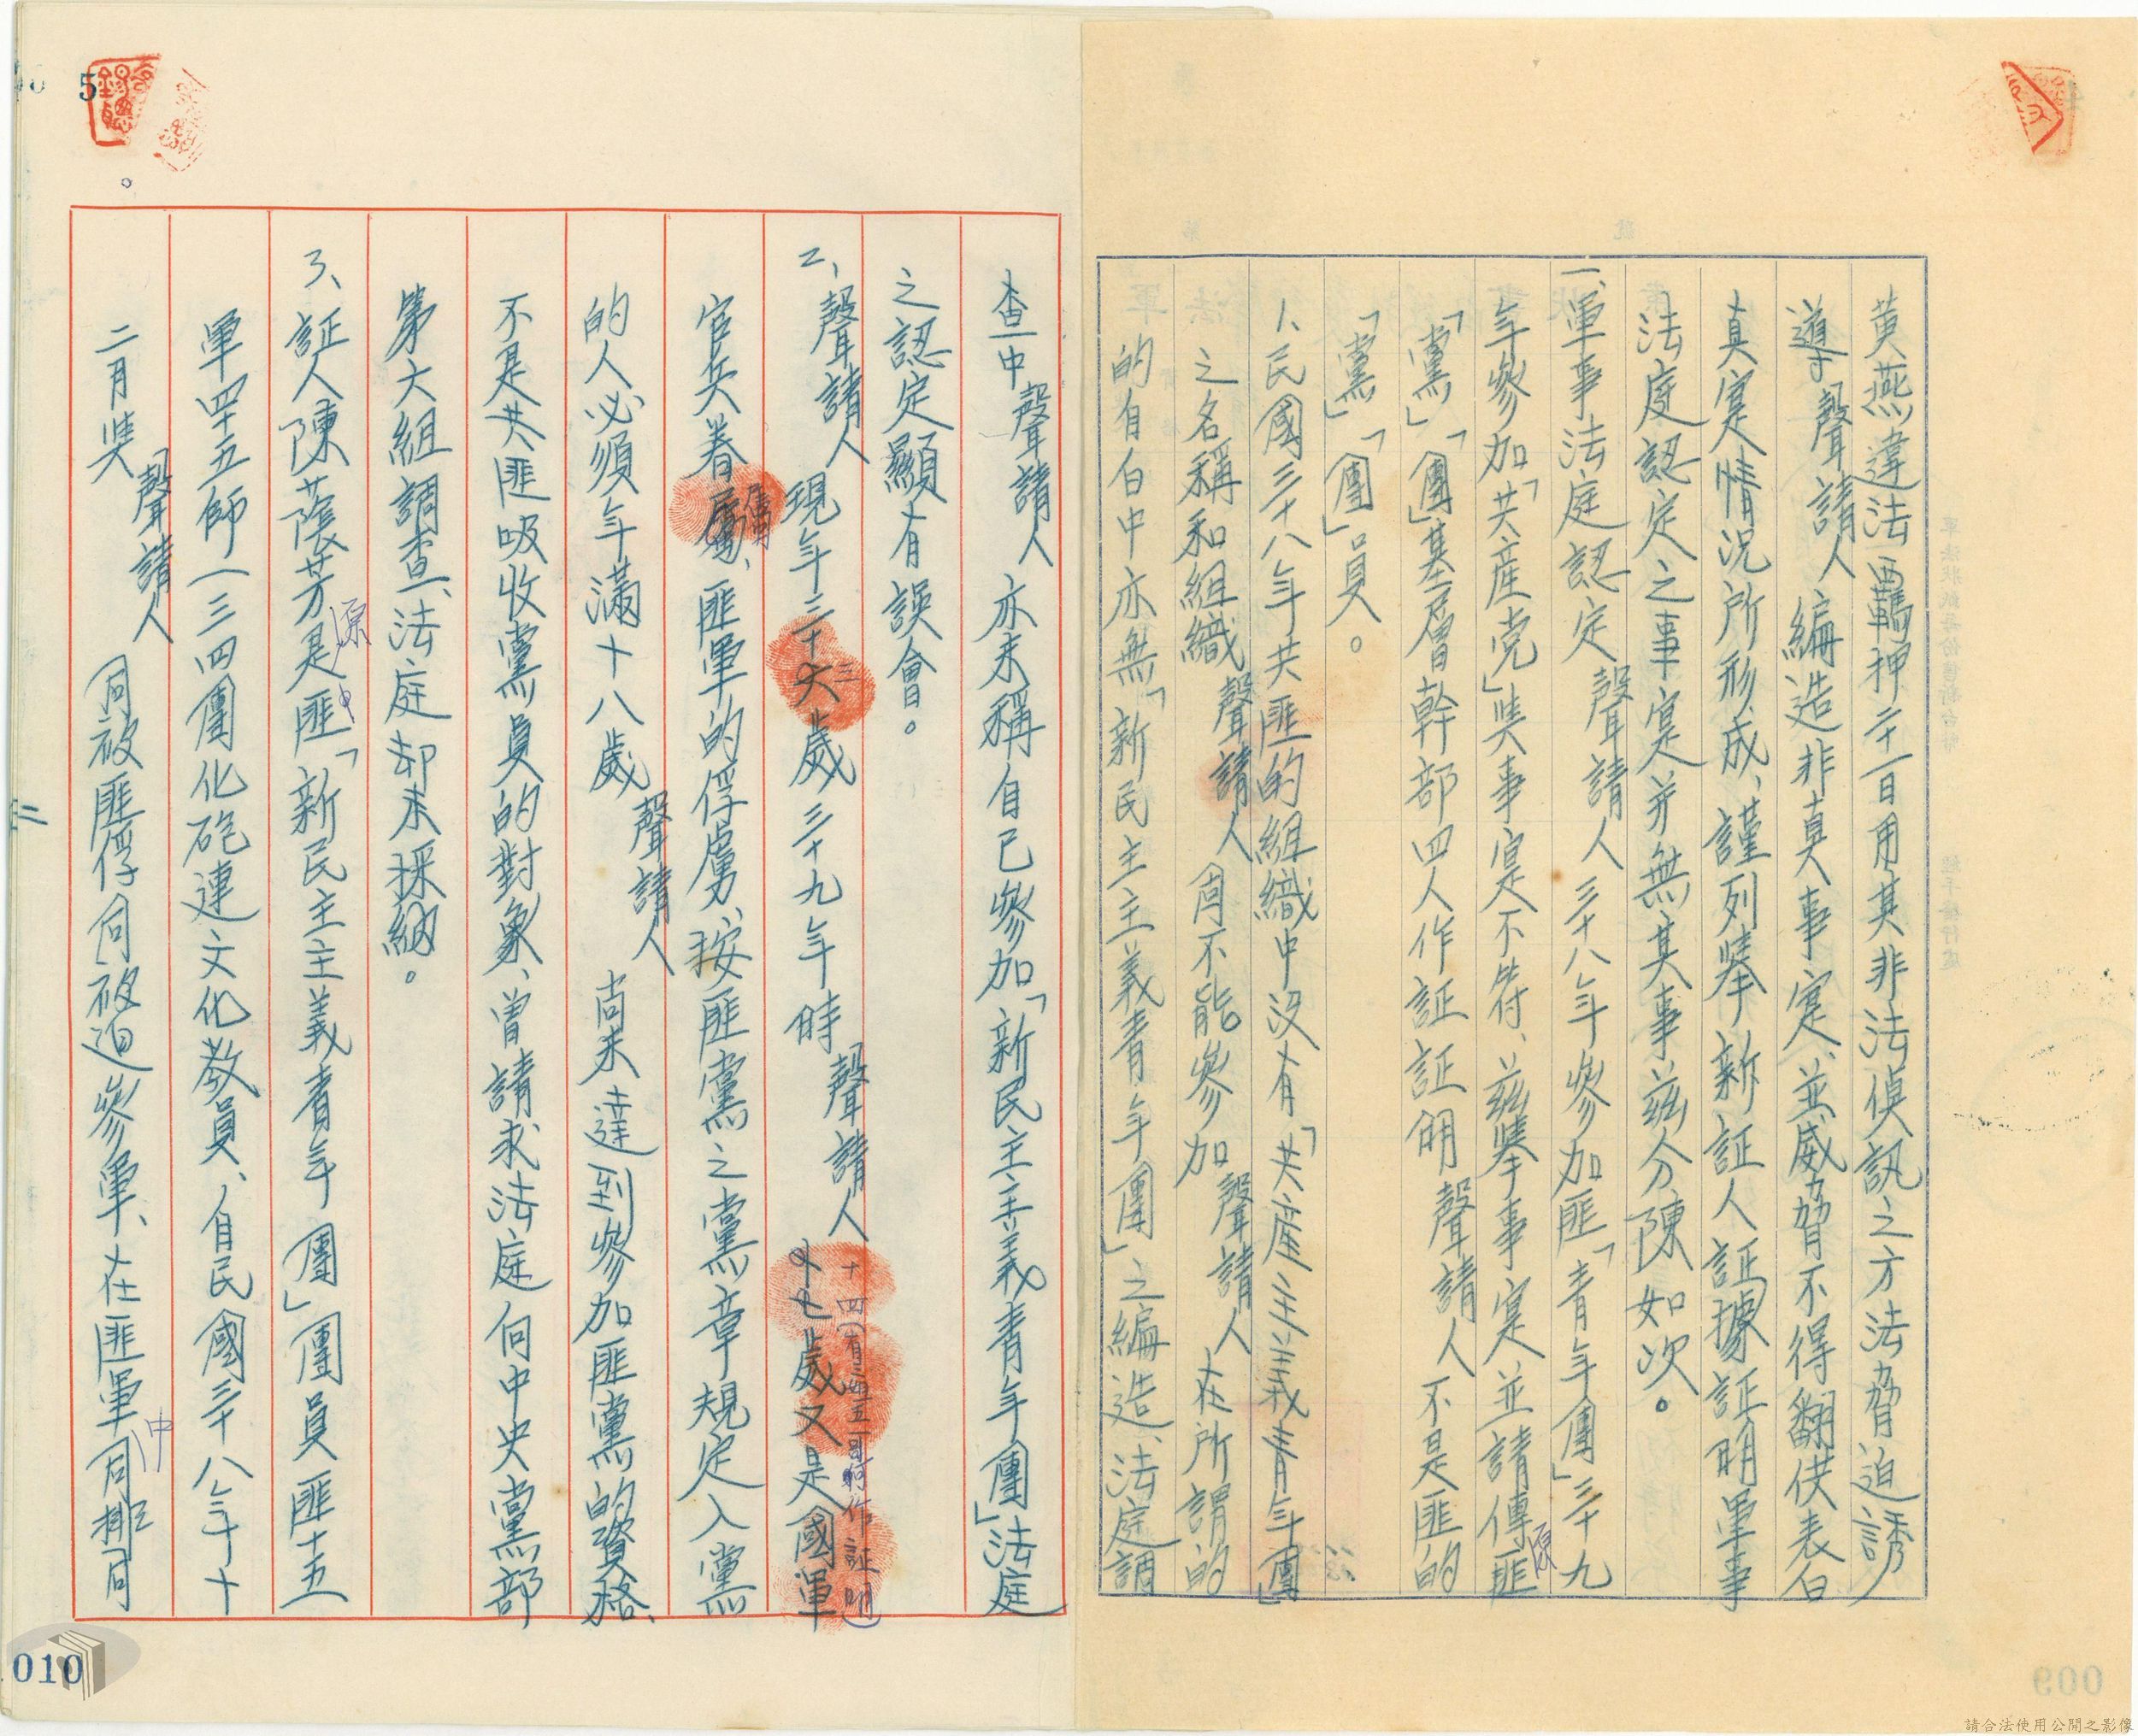 黄燕違法羈押二十一日用其非法偵訊之方法脅迫誘
導聲請人編造非真事寔、並威脅不得翻供表白
真寔情况所形成、謹列舉新証人証據証明軍事
法庭認定之事寔并無其事茲分陳如次。
一、軍事法庭認定聲請人三十八年參加匪「青年團」三十九
年參加「共產党」奘事寔不符、茲舉事寔並請傳原匪
「黨」「團」基層幹部四人作証証明聲請人不是匪的
「黨」「團」員。
1、民國三十八年共匪的組織中没有「共產主義青年團」
之名稱和組織聲請人尚不能參加聲請人在所謂的
的自白中亦無「新民主主義青年團」之編造、法庭調
查中聲請人亦未稱自已參加「新民主主義青年團」法庭
之認定顯有誤會。
2、聲請人現年三十三歲三十九年時聲請人十四(有三姐五哥可作証明)歲又是國軍
官兵眷屬、匪軍的俘虜、按匪黨之黨章規定入黨
的人必須年滿十八歲聲請人尚未達到參加匪黨的資格、
不是共匪吸收黨員的對象、曾請求法庭向中央黨部
第六組調查、法庭却未採納。
3、証人陳蔭芳是原匪中「新民主主義青年團」團員匪十五
軍四十五師一三四團化砲連文化教員、自民國三十八年十
二月奘聲請人同被匪俘同被迫參軍、在匪軍中同排同
5
010
009
請合法使用公開之影像